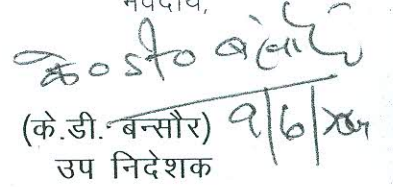 भवदीय,
के० डी० बन्सौर
(के.डी. बन्सौर) 9/6/
उप निदेशक